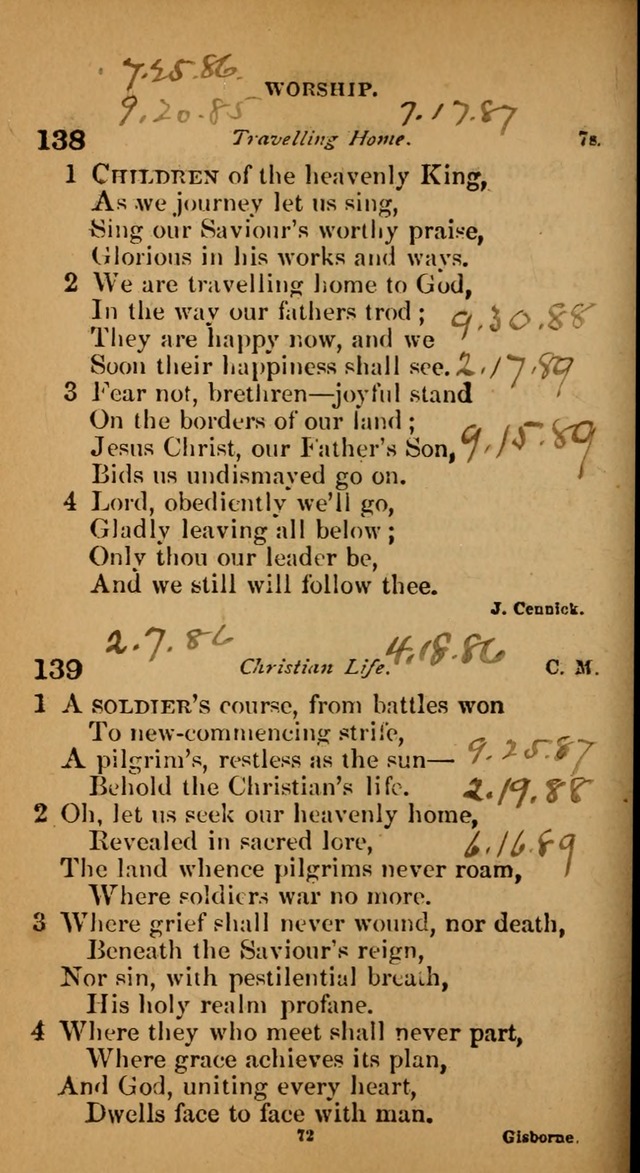 7.25.86.
WORSHIP.
9.20.85
7.17.87
138 Travelling Home. 7s.
1 CHILDREN of the heavenly King,
As we journey let us sing,
Sing our Saviour's worthy praise,
Glorious in his works and ways.
2 We are travelling home to God,
In the way our fathers trod ;
9.30.88
They are happy now, and we
Soon their happiness shall see. 2.17.89
3 Fear not, brethren—joyful stand
On the borders of our land ;
Jesus Christ, our Father's Son, 9.15.89
Bids us undismayed go on.
4 Lord, obediently we'll go,
Gladly leaving all below ;
Only thou our leader be,
And we still will follow thee.
J. Cennick.
2.7.86 4.18.86
139 Christian Life. C. M.
1 A SOLDIER'S course, from battles won
To new-commencing strife,
A pilgrim's, restless as the sun— 9.25.87
Behold the Christian's life. 2.19.88
2 Oh, let us seek our heavenly home,
Revealed in sacred lore, 6.16.89
The land whence pilgrims never roam,
Where soldiers war no more.
3 Where grief shall never wound, nor death,
Beneath the Saviour's reign,
Nor sin, with pestilential breath,
His holy realm profane.
4 Where they who meet shall never part,
Where grace achieves its plan,
And God, uniting every heart,
Dwells face to face with man.
72 Gisborne.